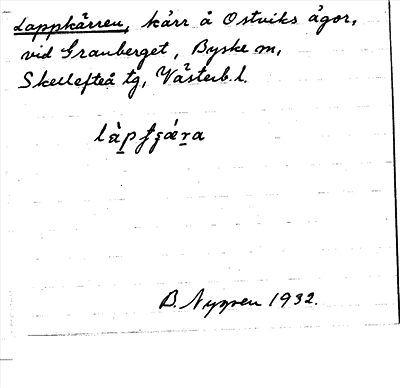 Lappkärren, kärr å Ostviks ägor,
vid Granberget, Byske sn,
Skellefteå tg, Västerb. l.
B. Nygren 1932.